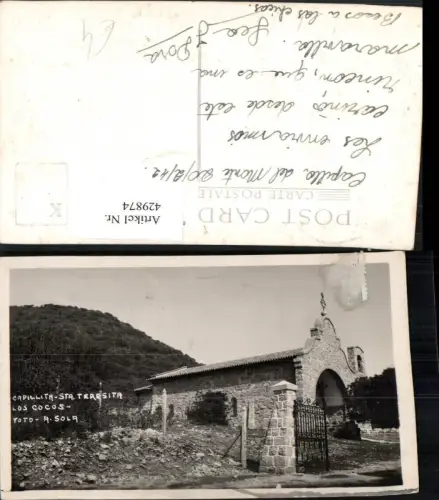 POST CARD
CARTE POSTALE
Capilla del Monte 20/2/42
Les enviamos
cariño desde este
rincón, que es una
maravilla.
Besos a las chicas.
Dora
Artikel Nr.
429874
K
CAPILLITA-STA TERESITA
LOS COCOS-
FOTO-A. SOLA